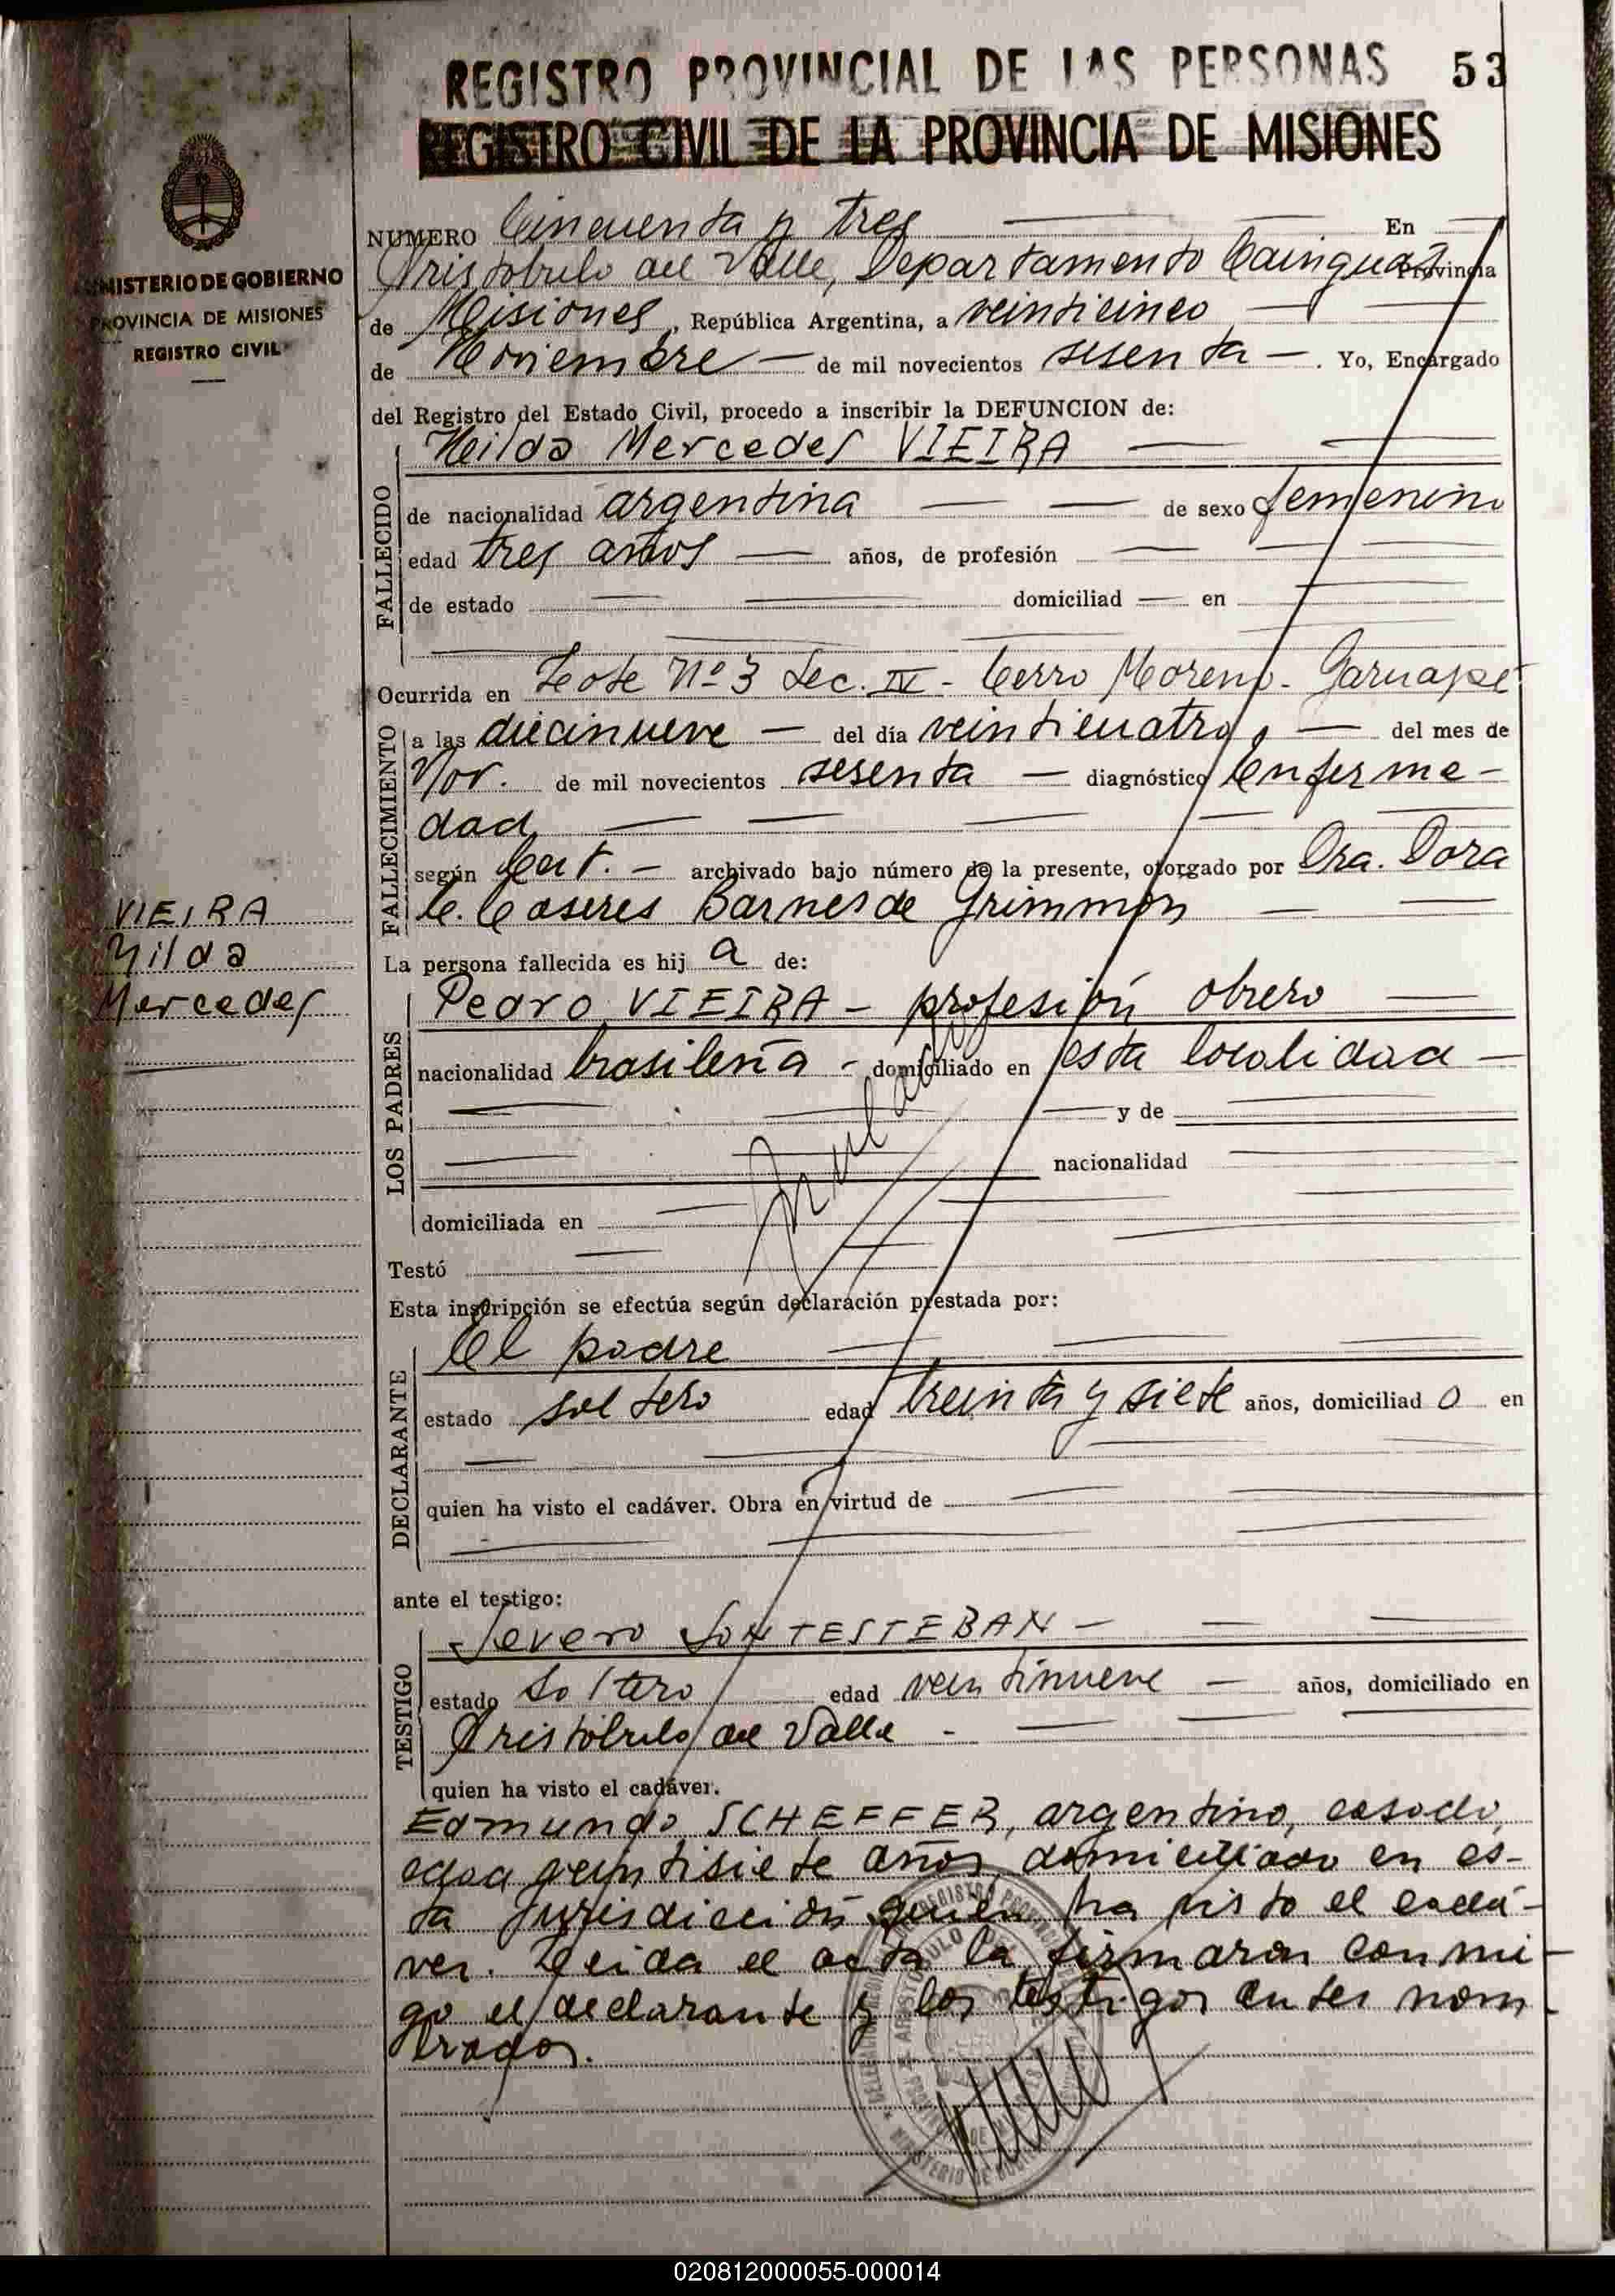 REGISTRO PROVINCIAL DE LAS PERSONAS 53
REGISTRO CIVIL DE LA PROVINCIA DE MISIONES
MINISTERIO DE GOBIERNO
PROVINCIA DE MISIONES
REGISTRO CIVIL
NUMERO Cincuenta y tres En
Aristobulo del Valle, Departamento Cainguas Provincia
de Misiones, República Argentina, a veinticinco
de Noviembre de mil novecientos sesenta. Yo, Encargado
del Registro del Estado Civil, procedo a inscribir la DEFUNCION de:
Hilda Mercedes VIEIRA
FALLECIDO
de nacionalidad argentina de sexo femenino
edad tres años años, de profesión
de estado domiciliad en
Ocurrida en Lote Nº 3 Sec. IV - Cerro Moreno - Garuapé
FALLECIMIENTO
a las diecinueve del día veinticuatro, del mes de
Nov. de mil novecientos sesenta diagnóstico Enferme-
dad
según Cert. archivado bajo número de la presente, otorgado por Dra. Dora
C. Caseres Barnes de Grimmon
VIEIRA
Hilda
Mercedes
La persona fallecida es hij a de:
LOS PADRES
Pedro VIEIRA - profesión obrero
nacionalidad brasileña - domiciliado en esta localidad
y de
nacionalidad
Anulada
domiciliada en
Testó
Esta inscripción se efectúa según declaración prestada por:
DECLARANTE
El padre
estado soltero edad treinta y siete años, domiciliad o en
quien ha visto el cadáver. Obra en virtud de
ante el testigo:
TESTIGO
Severo SONTESTEBAN
estado soltero edad veintinueve años, domiciliado en
Aristóbulo del Valle
quien ha visto el cadáver.
Edmundo SCHEFFER, argentino, casado,
edad veintisiete años domiciliado en es-
ta jurisdicción quien ha visto el cadá-
ver. Leida el acta la firmaron conmi-
go el declarante y los testigos antes nom-
brados.
020812000055-000014